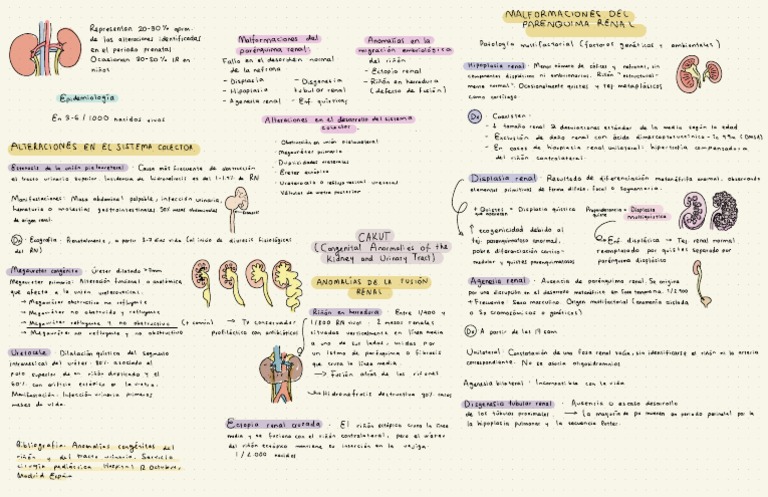 Representan 20-30% aprox.
de las alteraciones identificadas
en el periodo prenatal
Ocasionan 30-50% IR en
niños
Epidemiología
En 3-6 / 1000 nacidos vivos
Malformaciones del
parénquima renal:
Fallo en el desarrollo normal
de la nefrona
- Displasia
- Hipoplasia
- Agenesia renal
- Disgenesia
tubular renal
- Enf. quísticas
Anomalías en la
migración embriológica
del riñón
- Ectopia renal
- Riñón en herradura
(defecto de fusión)
Alteraciones en el desarrollo del sistema
colector
- Obstrucción en unión pieloureteral
- Megauréter primario
- Duplicidades ureterales
- Uréter ectópico
- Ureterocele o reflujo vesical ureteral
- Válvulas de uretra posterior
ALTERACIONES EN EL SISTEMA COLECTOR
Estenosis de la unión pieloureteral: Causa más frecuente de obstrucción
el tracto urinario superior. Incidencia de hidronefrosis es del 1-1.4% de RN
Manifestaciones: Masa abdominal palpable, infección urinaria,
hematuria o molestias gastrointestinales 50% masas abdominales
de origen renal.
Dx: Ecografía: Renoureteral, a partir 3-7 días vida (al inicio de diuresis fisiológicas
del RN)
Megauréter congénito: Uréter dilatado > 7mm
Megauréter primario: Alteración funcional o anatómica
que afecta a la unión ureterovesical:
→ Megauréter obstructivo no refluyente
→ Megauréter no obstruido y refluyente
→ Megauréter refluyente y no obstructivo (+ común) → Tx conservador
profiláctico con antibióticos
→ Megauréter no refluyente y no obstructivo
Ureterocele: Dilatación quística del segmento
intravesical del uréter. 80% asociado al
polo superior de un riñón duplicado y el
60% con orificio ectópico en la uretra.
Manifestación: Infección urinaria primeros
meses de vida.
Bibliografía: Anomalías congénitas del
riñón y del tracto urinario. Servicio
cirugía pediátrica Hospital 12 Octubre.
Madrid España
CAKUT
(Congenital Anomalies of the
Kidney and Urinary Tract)
ANOMALÍAS DE LA FUSIÓN
RENAL
Riñón en herradura: Entre 1/400 y
1/1800 RN vivos. 2 masas renales
situadas verticalmente en línea media
a uno de sus lados, unidas por
un istmo de parénquima o fibrosis
que cruza la línea media.
→ Fusión atrás de los
→ Hidronefrosis destructiva 90% casos
Ectopia renal cruzada: El riñón ectópico cruza la línea
media y se fusiona con el riñón contralateral, pero el uréter
del riñón ectópico mantiene su inserción en la vejiga.
1 / 2.000 nacidos
MALFORMACIONES DEL
PARÉNQUIMA RENAL
Patología multifactorial (factores genéticos y ambientales)
Hipoplasia renal: Menor número de cálices y nefronas, sin
componentes displásicos ni embrionarios. Riñón "estructural-
mente normal". Ocasionalmente quistes y tej metaplásicos
como cartílago.
Dx: Consisten:
- ↓ tamaño renal 2 desviaciones estándar de la media según la edad
- Exclusión de daño renal con ácido dimercaptosuccínico-Tc 99m (DMSA)
- En casos de hipoplasia renal unilateral: hipertrofia compensadora
del riñón contralateral.
Displasia renal: Resultado de diferenciación metanéfrica anormal, observando
elementos primitivos de forma difusa, focal o segmentaria.
+ Quistes = Displasia quística
Displasia
multiquística
↑ ecogenicidad debido al
tej. parenquimatoso anormal,
pobre diferenciación cortico-
medular y quistes parenquimatosos
Enf displásica → Tej renal normal
reemplazado por quistes separados por
parénquima displásico
Agenesia renal: Ausencia de parénquima renal. Se origina
por una disrupción en el desarrollo metanéfrico en fase temprana. 1/2900
+ Frecuente: Sexo masculino. Origen multifactorial (anomalía aislada
o Sx cromosómicos o genéticos)
Dx: A partir de las 17 sem
Unilateral: Constatación de una fosa renal vacía, sin identificarse el riñón ni la arteria
correspondiente. No se asocia oligohidramnios
Agenesia bilateral: Incompatible con la vida.
Disgenesia tubular renal: Ausencia o escaso desarrollo
de los túbulos proximales. → La mayoría de px mueren en periodo perinatal por la
la hipoplasia pulmonar y la secuencia Potter.